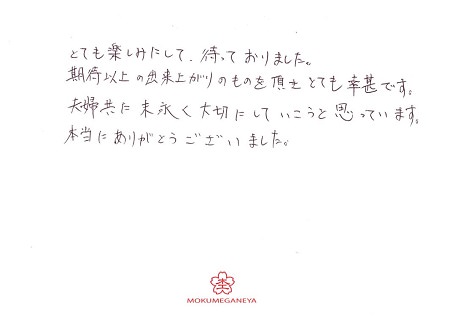 とても楽しみにして、待っておりました。
期待以上の出来上がりのものを頂きとても幸甚です。
夫婦共に末永く大切にしていこうと思っています。
本当にありがとうございました。
MOKUMEGANEYA